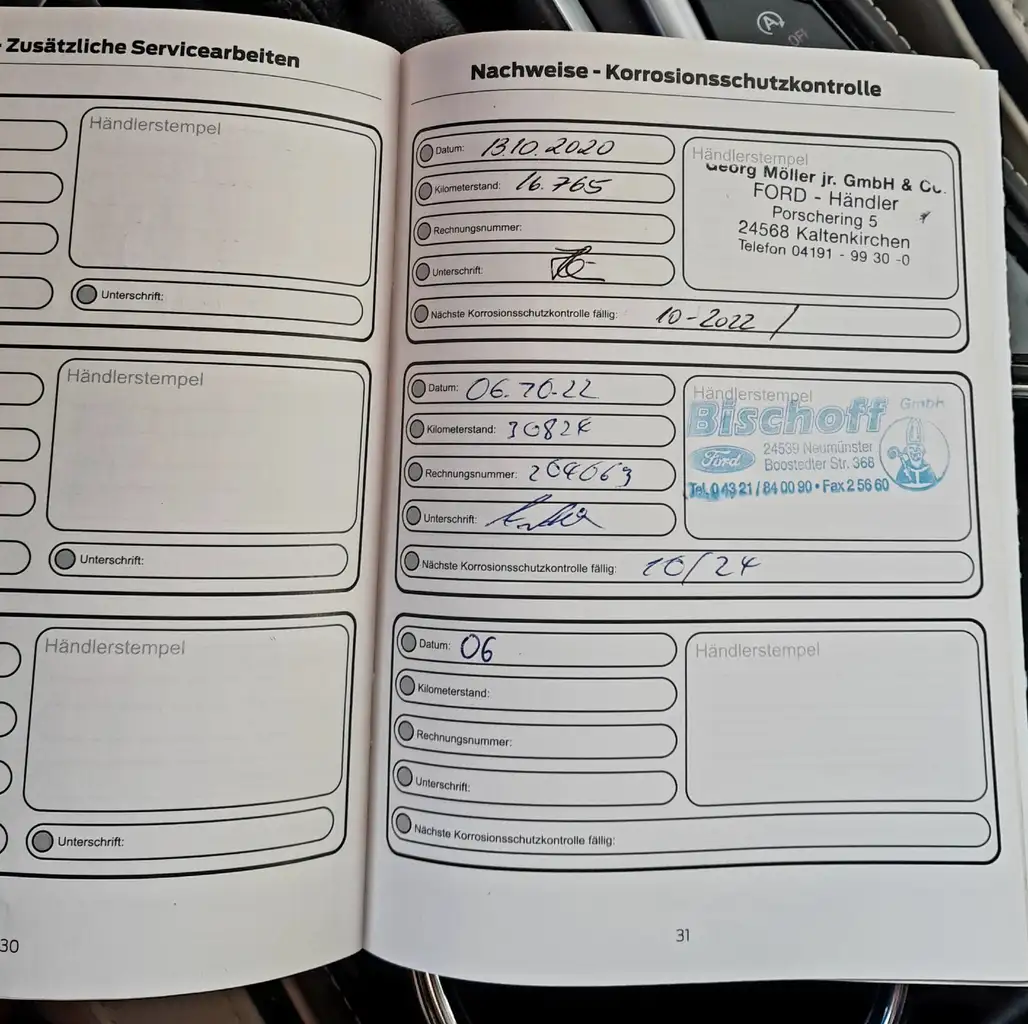 - Zusätzliche Servicearbeiten
Händlerstempel
Unterschrift:
Händlerstempel
Unterschrift:
Händlerstempel
Unterschrift:
30
Nachweise - Korrosionsschutzkontrolle
Datum: 13.10.2020
Kilometerstand: 16.765
Rechnungsnummer:
Unterschrift:
Nächste Korrosionsschutzkontrolle fällig: 10-2022 /
Händlerstempel
Georg Möller jr. GmbH & Co.
FORD - Händler
Porschering 5
24568 Kaltenkirchen
Telefon 04191 - 99 30 -0
Datum: 06.10.22
Kilometerstand: 30824
Rechnungsnummer: 204063
Unterschrift:
Nächste Korrosionsschutzkontrolle fällig: 10/24
Händlerstempel
Bischoff GmbH
Ford
24539 Neumünster
Boostedter Str. 368
Tel. 0 43 21 / 84 00 90 • Fax 2 56 60
Datum: 06
Kilometerstand:
Rechnungsnummer:
Unterschrift:
Nächste Korrosionsschutzkontrolle fällig:
Händlerstempel
31
A
OFF